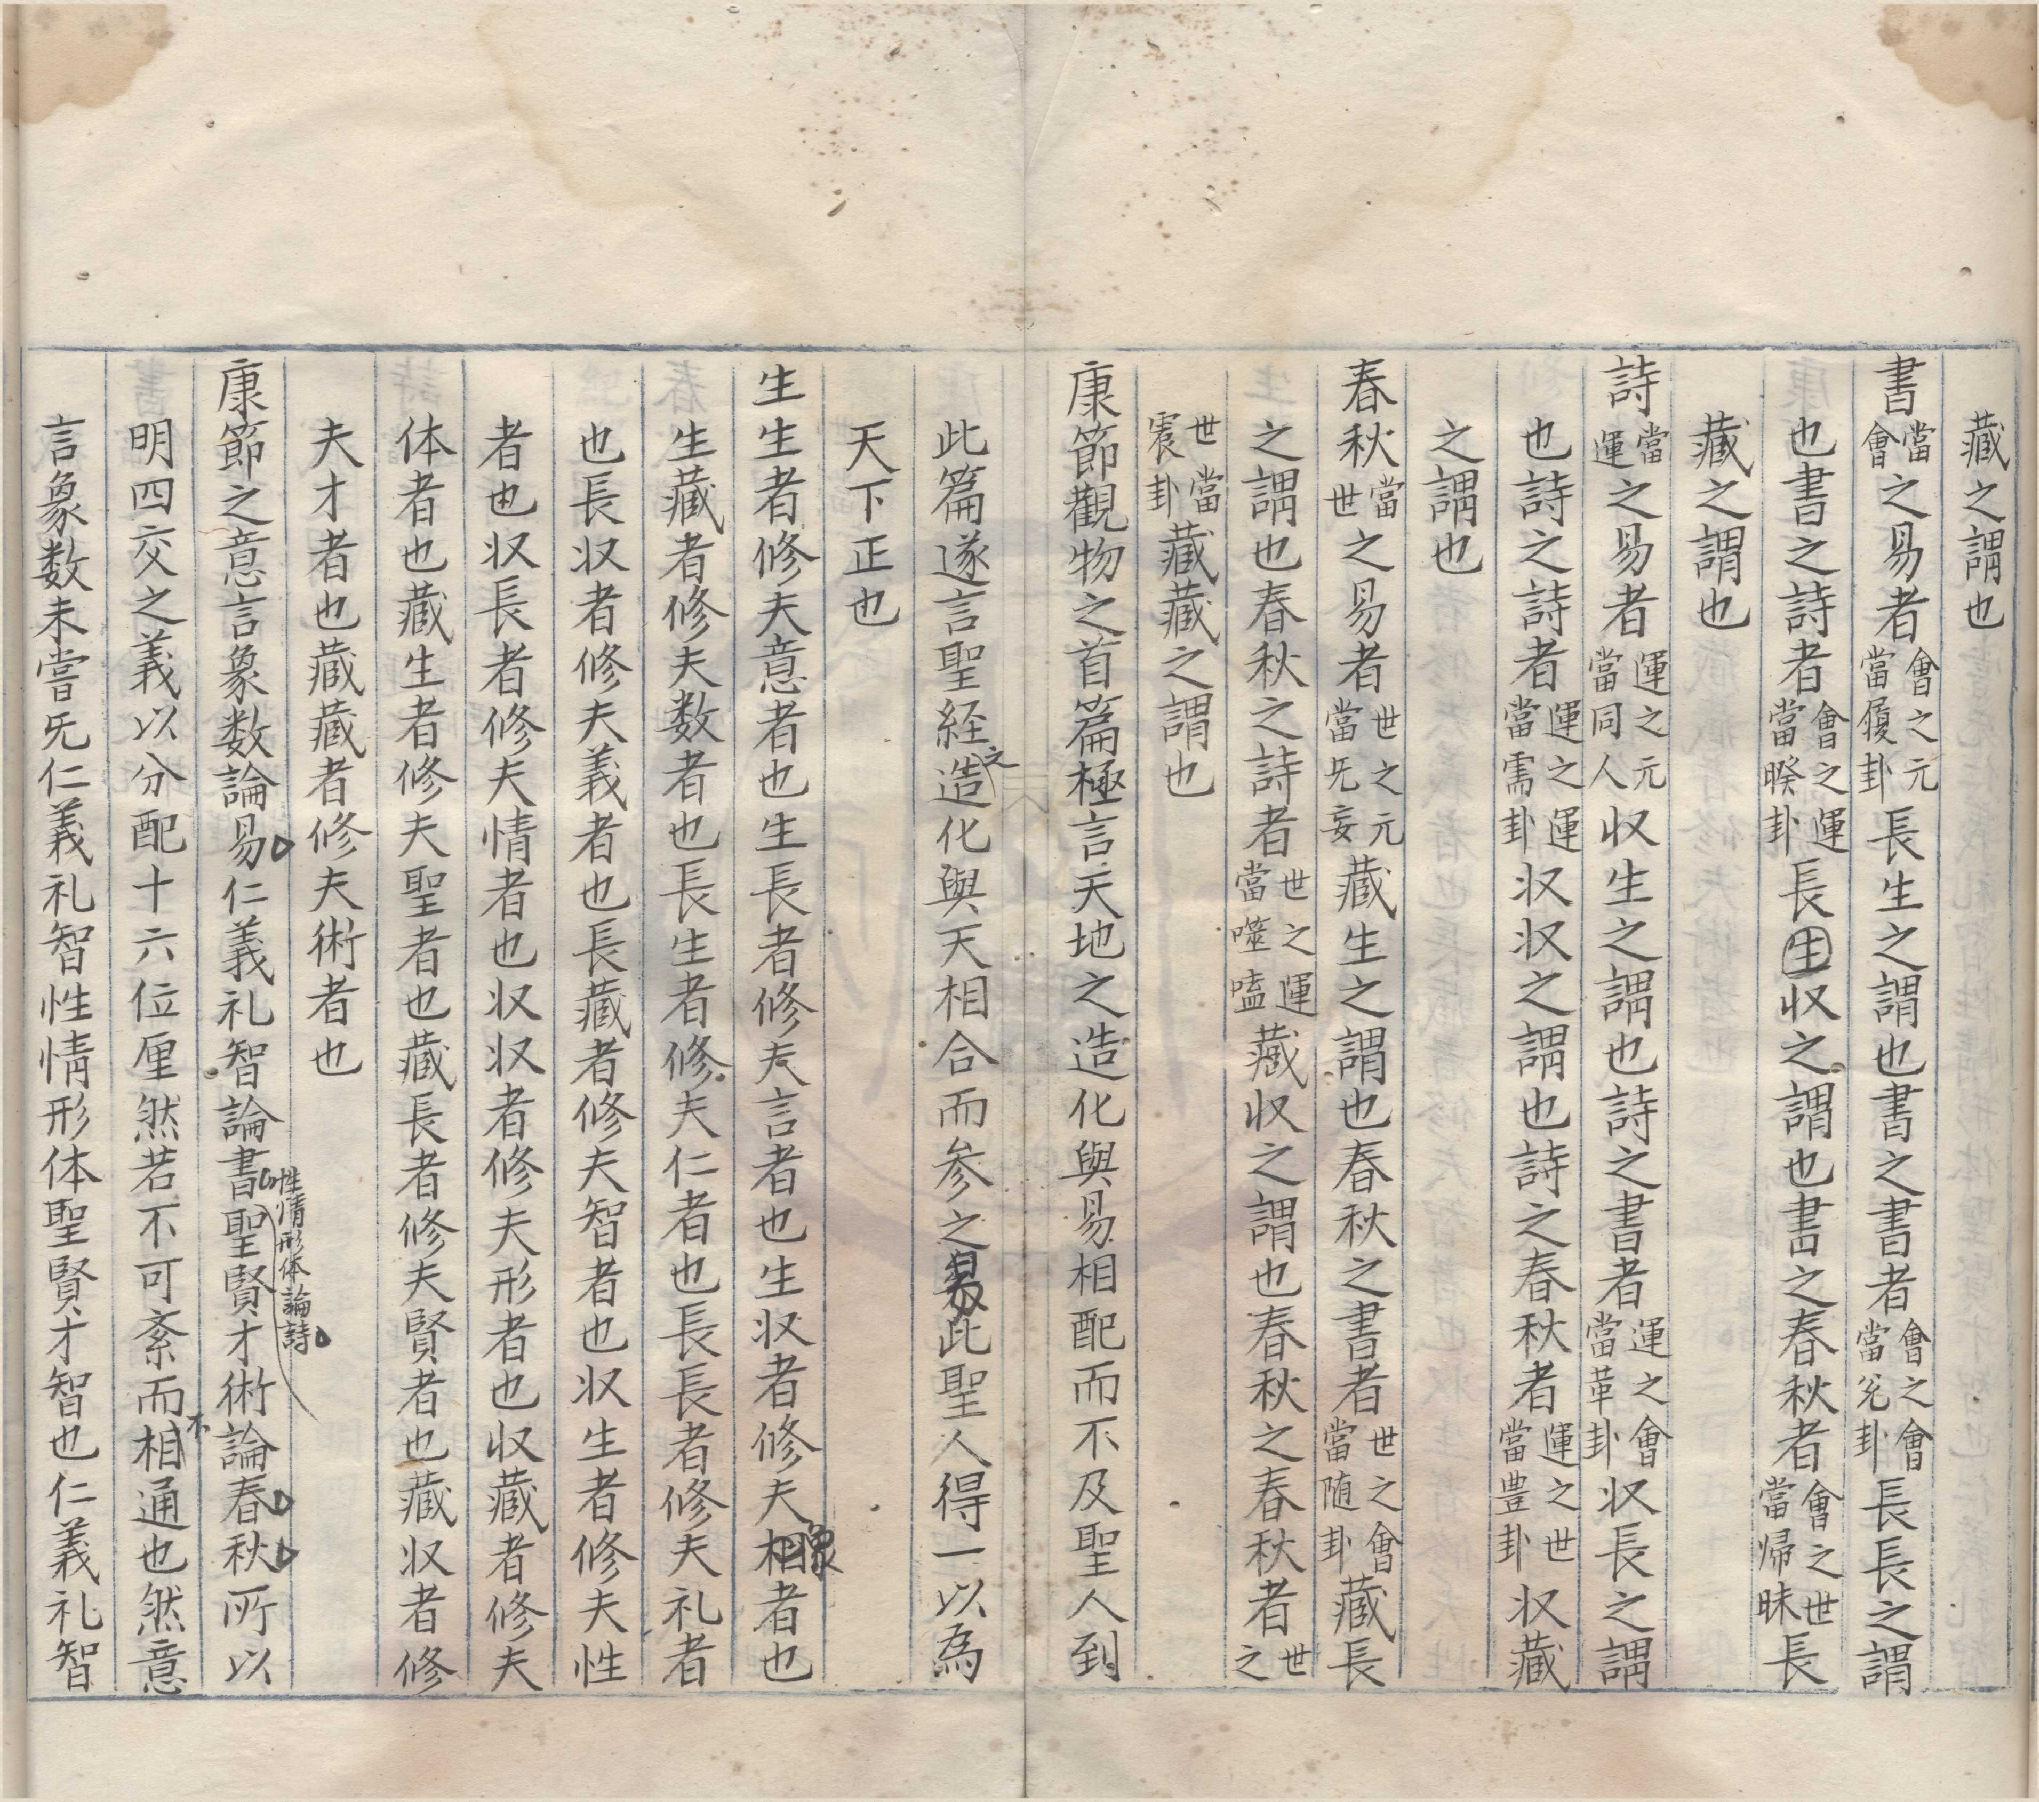 藏之謂也
書當會之易者會之元當履卦長生之謂也書之書者會之會當兊卦長長之謂
也書之詩者會之運當暌卦長生収之謂也書之春秋者會之世當帰昧長
藏之謂也
詩當運之易者運之元當同人収生之謂也詩之書者運之會當革卦収長之謂
也詩之詩者運之運當需卦収収之謂也詩之春秋者運之世當豊卦収藏
之謂也
春秋當世之易者世之元當旡妄藏生之謂也春秋之書者世之會當随卦藏長
之謂也春秋之詩者世之運當噬嗑藏収之謂也春秋之春秋者世之
世當震卦藏藏之謂也
康節觀物之首篇極言天地之造化與易相配而不及聖人到
此篇遂言聖経之造化與天相合而参之易此聖人得一以為
天下正也
生生者修夫意者也生長者修夫言者也生収者修夫象者也
生藏者修夫数者也長生者修夫仁者也長長者修夫礼者
也長収者修夫義者也長藏者修夫智者也収生者修夫性
者也収長者修夫情者也収収者修夫形者也収藏者修夫
体者也藏生者修夫聖者也藏長者修夫賢者也藏収者修
夫才者也藏藏者修夫術者也
康節之意言象数論易仁義礼智論書性情形体論詩聖賢才術論春秋所以
明四交之義以分配十六位厘然若不可紊而不相通也然意
言象数未嘗旡仁義礼智性情形体聖賢才智也仁義礼智